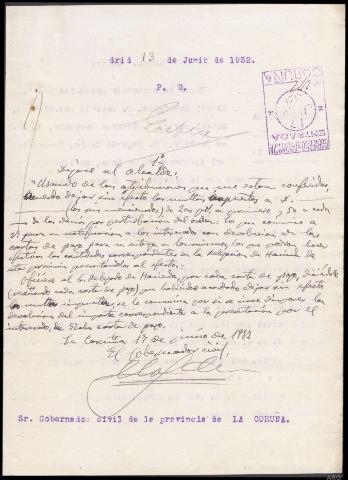 drid 13 de Junio de 1932.
P. D.
CORUÑA
ENTRADA
Dígase al alcalde:
"Usando de las atribuciones que me están conferidas,
acuerdo dejar sin efecto las multas impuestas a D.
(los mencionados) de 200 pts. al primero y 50 a cada
uno de los demás por perturbación del orden: lo que comunico a
V. para su notificación a los interesados con devolución de las
cartas de pago para su entrega a los mismos, los que podrán hacer
efectivas las cantidades correspondientes en la Delegación de Hacienda de
esta provincia presentándolas al efecto.
Ofíciese al Sr. Delegado de Hacienda, por cada carta de pago, diciéndole
(reseñando cada carta de pago) que habiendo acordado dejar sin efecto
la multa impuesta, se lo comunico por si se sirve disponer la
devolución del importe correspondiente a la presentación por el
interesado de dicha carta de pago.
La Coruña 17 de junio de 1932
El Gobernador civil,
Sr. Gobernador civil de la provincia de LA CORUÑA.